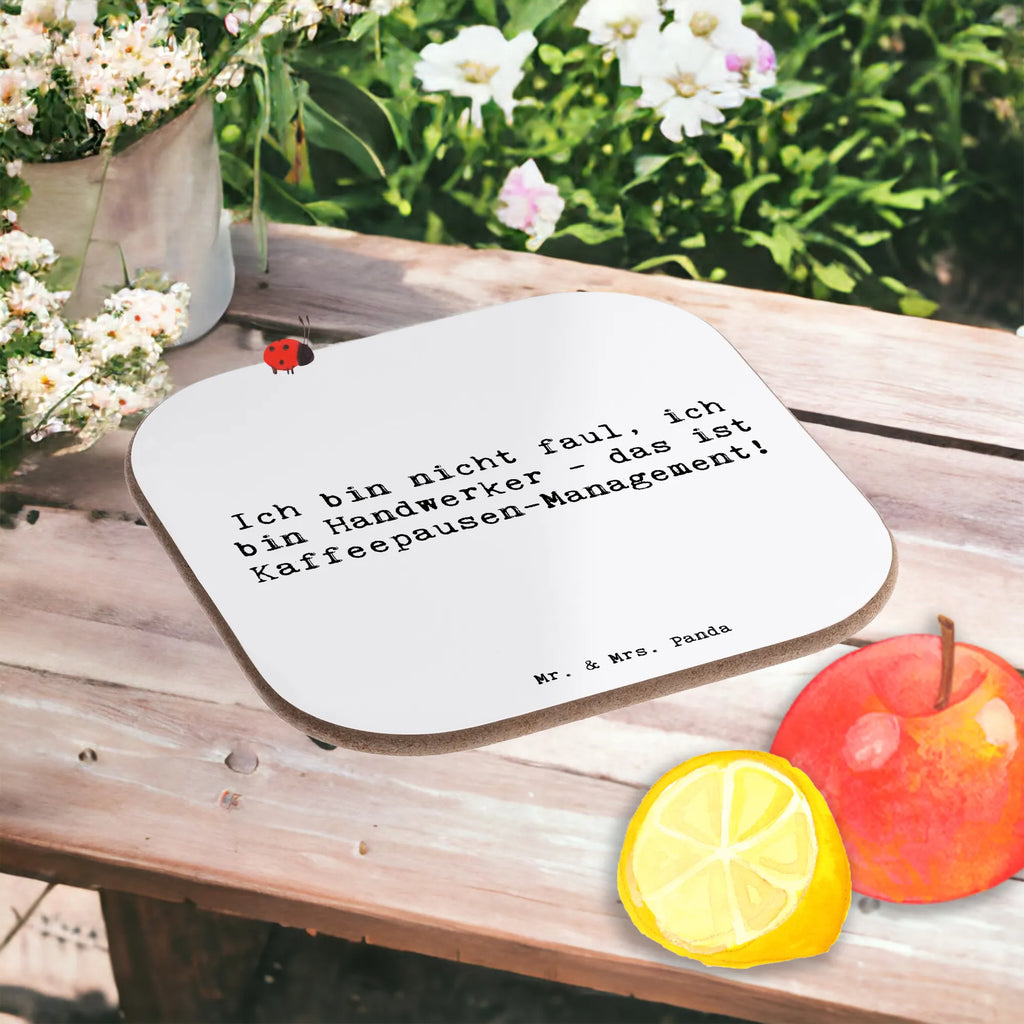 Ich bin nicht faul, ich
bin Handwerker – das ist
Kaffeepausen-Management!
Mr. & Mrs. Panda